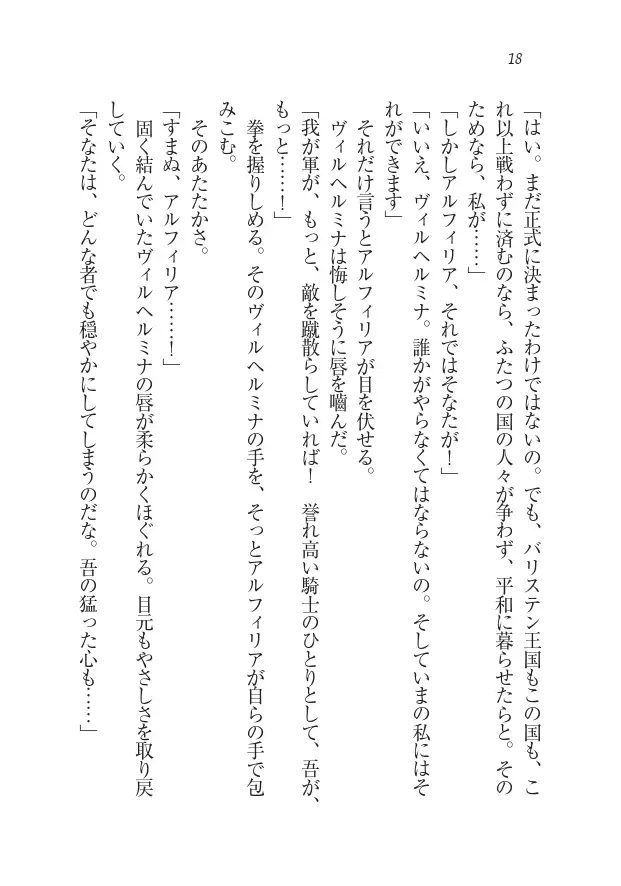 18
「はい。まだ正式に決まったわけではないの。でも、バリステン王国もこの国も、こ
れ以上戦わずに済むのなら、ふたつの国の人々が争わず、平和に暮らせたらと。その
ためなら、私が……」
「しかしアルフィリア、それではそなたが！」
「いいえ、ヴィルヘルミナ。誰かがやらなくてはならないの。そしていまの私にはそ
れができます」
それだけ言うとアルフィリアが目を伏せる。
ヴィルヘルミナは悔しそうに唇を嚙んだ。
「我が軍が、もっと、敵を蹴散らしていれば！　誉れ高い騎士のひとりとして、吾が、
もっと……！」
拳を握りしめる。そのヴィルヘルミナの手を、そっとアルフィリアが自らの手で包
みこむ。
そのあたたかさ。
「すまぬ、アルフィリア……！」
固く結んでいたヴィルヘルミナの唇が柔らかくほぐれる。目元もやさしさを取り戻
していく。
「そなたは、どんな者でも穏やかにしてしまうのだな。吾の猛った心も……」